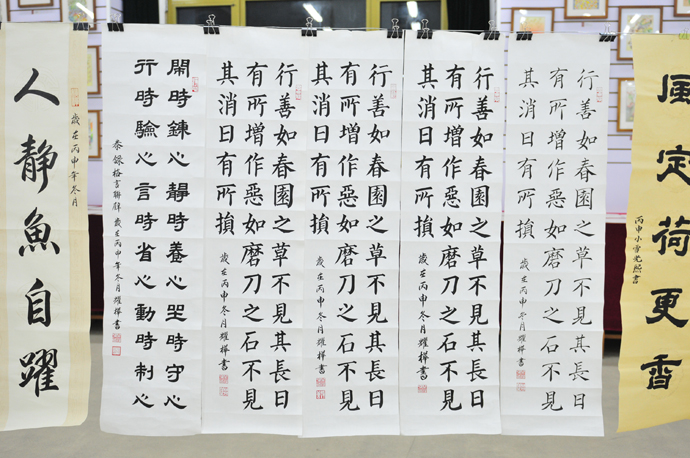 風定荷更香
丙申小雪
行善如春園之草不見其長日
有所增作惡如磨刀之石不見
其消日有所損
歲在丙申冬月耀樺書
行善如春園之草不見其長日
有所增作惡如磨刀之石不見
其消日有所損
歲在丙申冬月耀樺書
行善如春園之草不見其長日
有所增作惡如磨刀之石不見
其消日有所損
歲在丙申冬月耀樺書
行善如春園之草不見其長日
有所增作惡如磨刀之石不見
其消日有所損
歲在丙申冬月耀樺書
閑時鍊心靜時養心坐時守心
行時驗心言時省心動時制心
恭錄格言聯璧 歲在丙申年冬月耀樺書
人靜魚自躍
歲在丙申年冬月